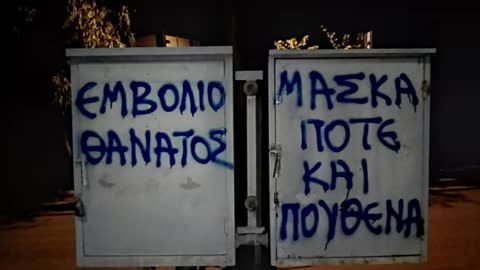 ΕΜΒΟΛΙΟ
ΘΑΝΑΤΟΣ
ΜΑΣΚΑ
ΠΟΤΕ
ΚΑΙ
ΠΟΥΘΕΝΑ